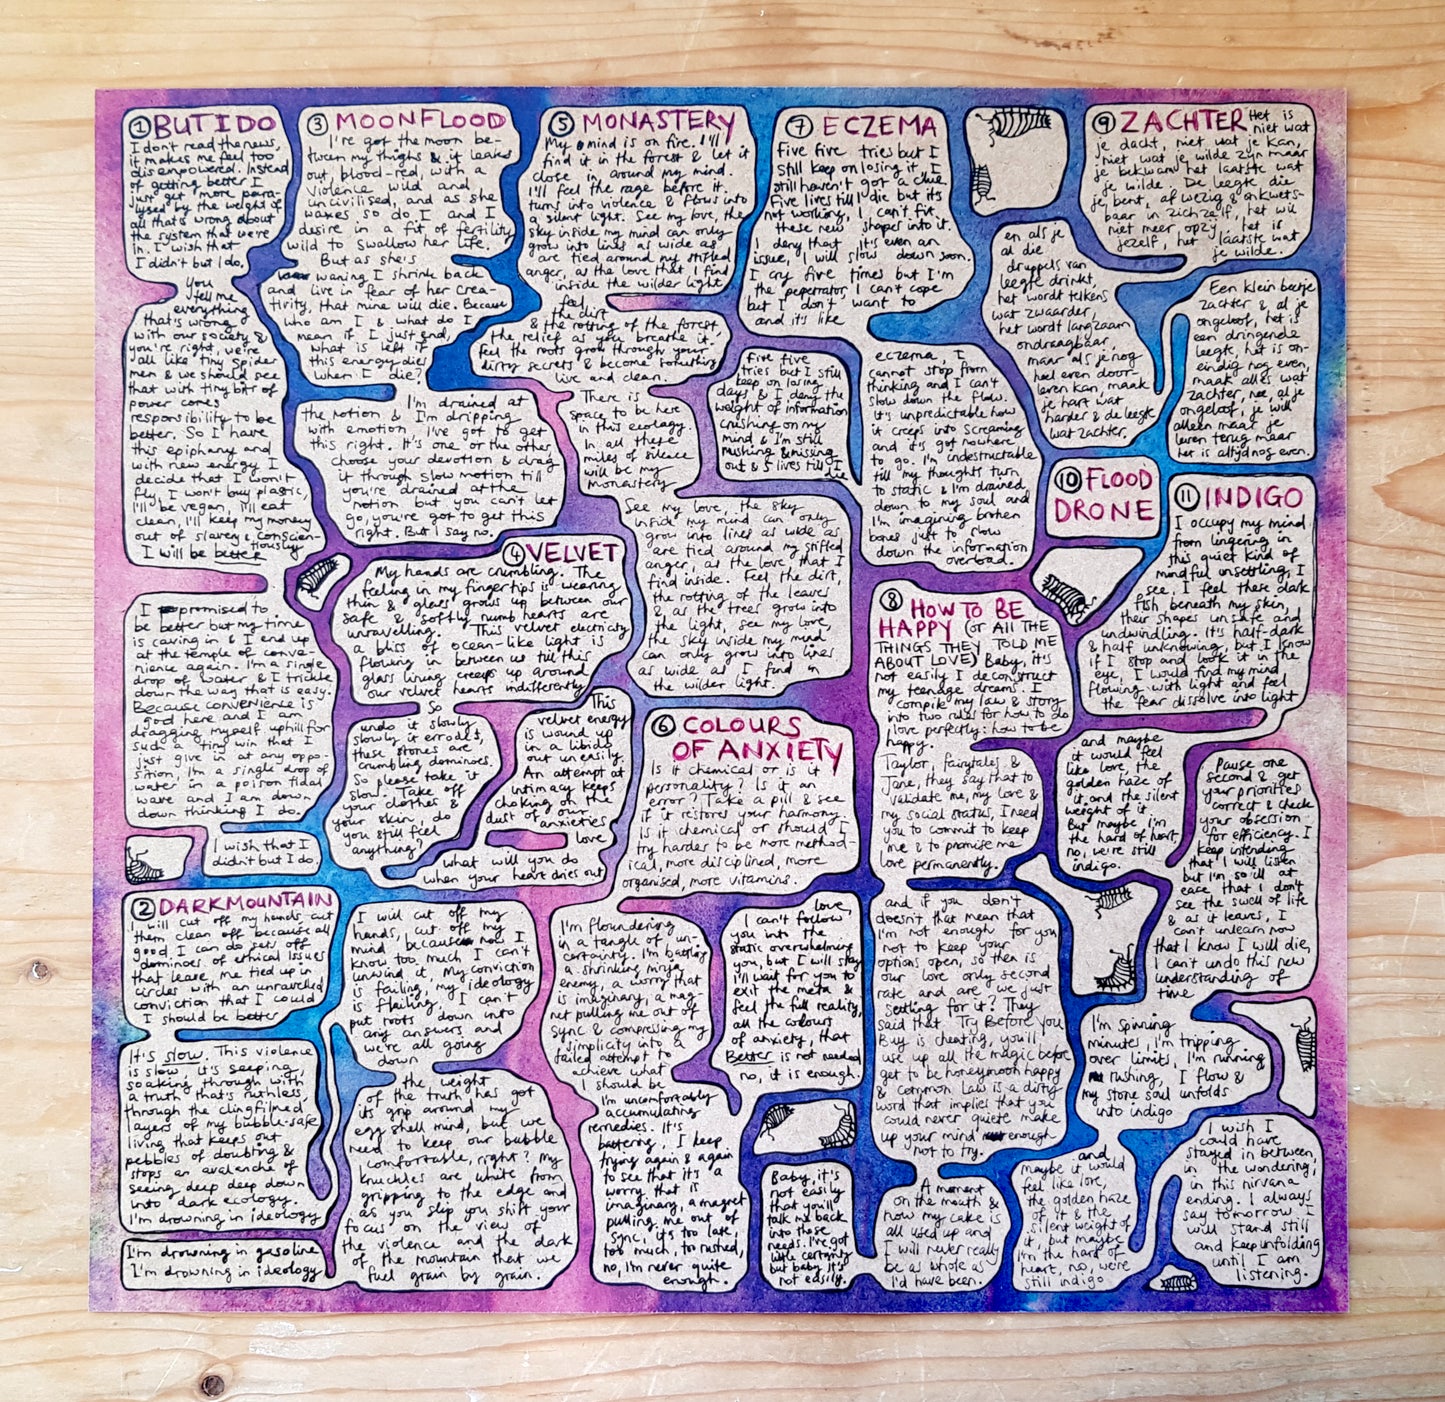 ① BUT I DO
I don't read the news,
it makes me feel too
disempowered. Instead
of getting better I
just get more para-
lysed by the weight of
all that's wrong about
the system that we're
in. I wish that
I didn't but I do.
You
tell me
everything
that's wrong
with our society &
you're right, we're
all like tiny spider
men & we should see
that with tiny bit of
power comes
responsibility to be
better. So I have
this epiphany and
with new energy I
decide that I won't
fly, I won't buy plastic,
I'll be vegan, I'll eat
clean, I'll keep my money
out of slavery & conscien-
tiously
I will be better
I promised to
be better but my time
is caving in & I end up
at the temple of conve-
nience again. I'm a single
drop of water & I trickle
down the way that is easy.
Because convenience is
god here and I am
dragging myself uphill for
such a tiny win that I
just give in at any oppo-
sition, I'm a single drop of
water in a poison tidal
wave and I am down
down thinking I do.
I wish that I
didn't but I do.
② DARK MOUNTAIN
I will cut off my hands, cut
them clean off because all
good I can do sets off
dominoes of ethical issues
that leave me tied up in
circles with an unravelled
conviction that I could
I should be better
It's slow. This violence
is slow, it's seeping,
soaking through with
a truth that's ruthless,
through the clingfilmed
layers of my bubble-safe
living that keeps out
pebbles of doubting &
stops an avalanche of
seeing deep deep down
into dark ecology.
I'm drowning in ideology
I'm drowning in gasoline
I'm drowning in ideology
I will cut off my
hands, cut off my
mind because now I
know too much I can't
unwind it. My conviction
is failing, my ideology
is flailing, I can't
put roots down into
any answers and
we're all going
down
the weight
of the truth has got
its grip around my
egg shell mind, but we
need to keep our bubble
comfortable, right? My
knuckles are white from
gripping to the edge and
as you slip you shift your
focus on the view of
the violence and the dark
of the mountain that we
fuel grain by grain.
③ MOONFLOOD
I've got the moon be-
tween my thighs & it leaks
out, blood-red, with a
violence wild and
uncivilised, and as she
waxes so do I and I
desire in a fit of fertility
wild to swallow her life.
But as she's
waning I shrink back
and live in fear of her crea-
tivity, that mine will die. Because
who am I & what do I
mean if I just end,
what is left if
this energy dies
when I die?
I'm drained at
the notion & I'm dripping
with emotion I've got to get
this right. It's one or the other
choose your devotion & drag
it through slow motion till
you're drained at the
notion but you can't let
go, you've got to get this
right. But I say no.
④ VELVET
My hands are crumbling. The
feeling in my fingertips is wearing
thin & glass grows up between our
safe & softly numb hearts are
unravelling. This velvet electricity
a bliss of ocean-like light is
flowing in between us till this
glass lining creeps up around
our velvet hearts indifferently
So
undo it slowly
slowly it erodes,
these stones are
crumbling dominoes.
So please take it
slow. Take off
your clothes &
your skin, do
you still feel
anything?
This
velvet energy
is wound up
in a libido
out uneasily.
An attempt at
intimacy keeps
choking on the
dust of our
anxieties
love
what will you do
when your heart dries out
⑤ MONASTERY
My mind is on fire. I'll
find it in the forest & let it
close in around my mind.
I'll feel the rage before it
turns into violence & flows into
a silent light. See my love, the
sky inside my mind can only
grow into lines as wide as
are tied around my stifled
anger, as the love that I find
inside the wilder light
feel
the dirt
& the rotting of the forest,
the relief as you breathe it.
feel the roots grow through your
dirty secrets & become something
live and clean.
There is
space to be here
in this ecology.
In all these
miles of silence
will be my
monastery
See my love, the sky
inside my mind can only
grow into lines as wide as
are tied around my stifled
anger, as the love that I
find inside. Feel the dirt,
the rotting of the leaves
& as the trees grow into
the light, see my love,
the sky inside my mind
can only grow into lines
as wide as I find in
the wilder light.
⑥ COLOURS
OF ANXIETY
Is it chemical or is it
personality? Is it an
error? Take a pill & see
if it restores your harmony
Is it chemical or should I
try harder to be more method-
ical, more disciplined, more
organised, more vitamins.
I'm floundering
in a tangle of un-
certainty. I'm battling
a shrinking ninja
enemy, a worry that
is imaginary, a mag-
net pulling me out of
sync & compressing my
simplicity into a
failed attempt to
achieve what
I should be
I'm uncomfortably
accumulating
remedies. It's
battering, I keep
trying again & again
to see that it's a
worry that is
imaginary, a magnet
pulling me out of
sync, it's too late,
too much, too rushed,
no, I'm never quite
enough.
love,
I can't follow
you into the
static overwhelming
you, but I will stay
I'll wait for you to
exit the meta &
feel the full reality,
all the colours
of anxiety, that
Better is not needed
no, it is enough.
⑦ ECZEMA
Five five tries but I
still keep on losing it, I
still haven't got a clue
Five lives till I die but it's
not working, I can't fit
these new shapes into it.
I deny that it's even an
issue, I will slow down soon.
I cry five times but I'm
the perpetrator, I can't cope
but I don't want to
and it's like
Five five
tries but I still
keep on losing
days & I deny the
weight of information
crushing on my
mind & I'm still
rushing & missing
out & 5 lives till I
die
eczema, I
cannot stop from
thinking and I can't
slow down the flow.
It's unpredictable how
it creeps into screaming
and it's got nowhere
to go. I'm indestructable
till my thoughts turn
to static & I'm drained
down to my soul and
I'm imagining broken
bones just to slow
down the information
overload.
⑧ HOW TO BE
HAPPY (OR ALL THE
THINGS THEY TOLD ME
ABOUT LOVE) Baby, it's
not easily I deconstruct
my teenage dreams. I
compile my law & story
into two rules for how to do
love perfectly: how to be
happy.
Taylor, fairytales &
Jane, they say that to
validate me, my love &
my social status, I need
you to commit to keep
me & to promise me
love permanently.
and if you don't
doesn't that mean that
I'm not enough for you
not to keep your
options open, so then is
our love only second
rate and are we just
settling for it? They
said that Try Before You
Buy is cheating, you'll
use up all the magic before
get to be honeymoon happy
& common Law is a dirty
word that implies that you
could never quite make
up your mind enough
not to try.
A moment
on the mouth &
now my cake is
all used up and
I will never really
be as whole as
I'd have been.
Baby, it's
not easily
that you'll
talk me back
into those
needs. I've got
little certainty
but baby it's
not easily.
⑨ ZACHTER Het is
niet wat
je dacht, niet wat je kan,
niet wat je wilde zijn maar
je bekwam het laatste wat
je wilde. De leegte die
je bent, afwezig & onkwets-
baar in zichzelf, het wil
niet meer, op zij, het is
jezelf, het laatste wat
je wilde.
en als je
al die
druppels van
leegte drinkt,
het wordt telkens
wat zwaarder,
het wordt langzaam
ondraagbaar,
maar als je nog
heel even door-
leren kan, maak
je hart wat
harder & de leegte
wat zachter.
Een klein beetje
zachter & al je
ongeloof, het is
een dringende
leegte, het is on-
eindig nog even,
maak alles wat
zachter, nee, al je
ongeloof, je wil
alleen maar je
leven terug maar
het is altijd nog even.
⑩ FLOOD
DRONE
⑪ INDIGO
I occupy my mind
from lingering in
this quiet kind of
mindful unsettling, I
see, I feel these dark
fish beneath my skin,
their shapes unsafe and
unwindling. It's half-dark
& half unknowing, but I know
if I stop and look it in the
eye, I would find my mind
flowing with light and feel
the fear dissolve into light
and maybe
it would feel
like love, the
golden haze of
it and the silent
weight of it.
But maybe I'm
the hard of heart,
no, we're still
indigo.
Pause one
second & get
your priorities
correct & check
your obsession
for efficiency. I
keep intending
that I will listen
but I'm so ill at
ease that I don't
see the swell of life
& as it leaves, I
can't unlearn now
that I know I will die,
I can't undo this new
understanding of
time
I'm spinning
minutes, I'm tripping
over limits, I'm running
rushing, I flow &
my stone soul unfolds
into indigo
and
maybe it would
feel like love,
the golden haze
of it & the
silent weight of
it, but maybe
I'm the hard of
heart, no, we're
still indigo
I wish I
could have
stayed in between,
in the wondering,
in this nirvana
ending. I always
say tomorrow I
will stand still
and keep unfolding
until I am
listening.